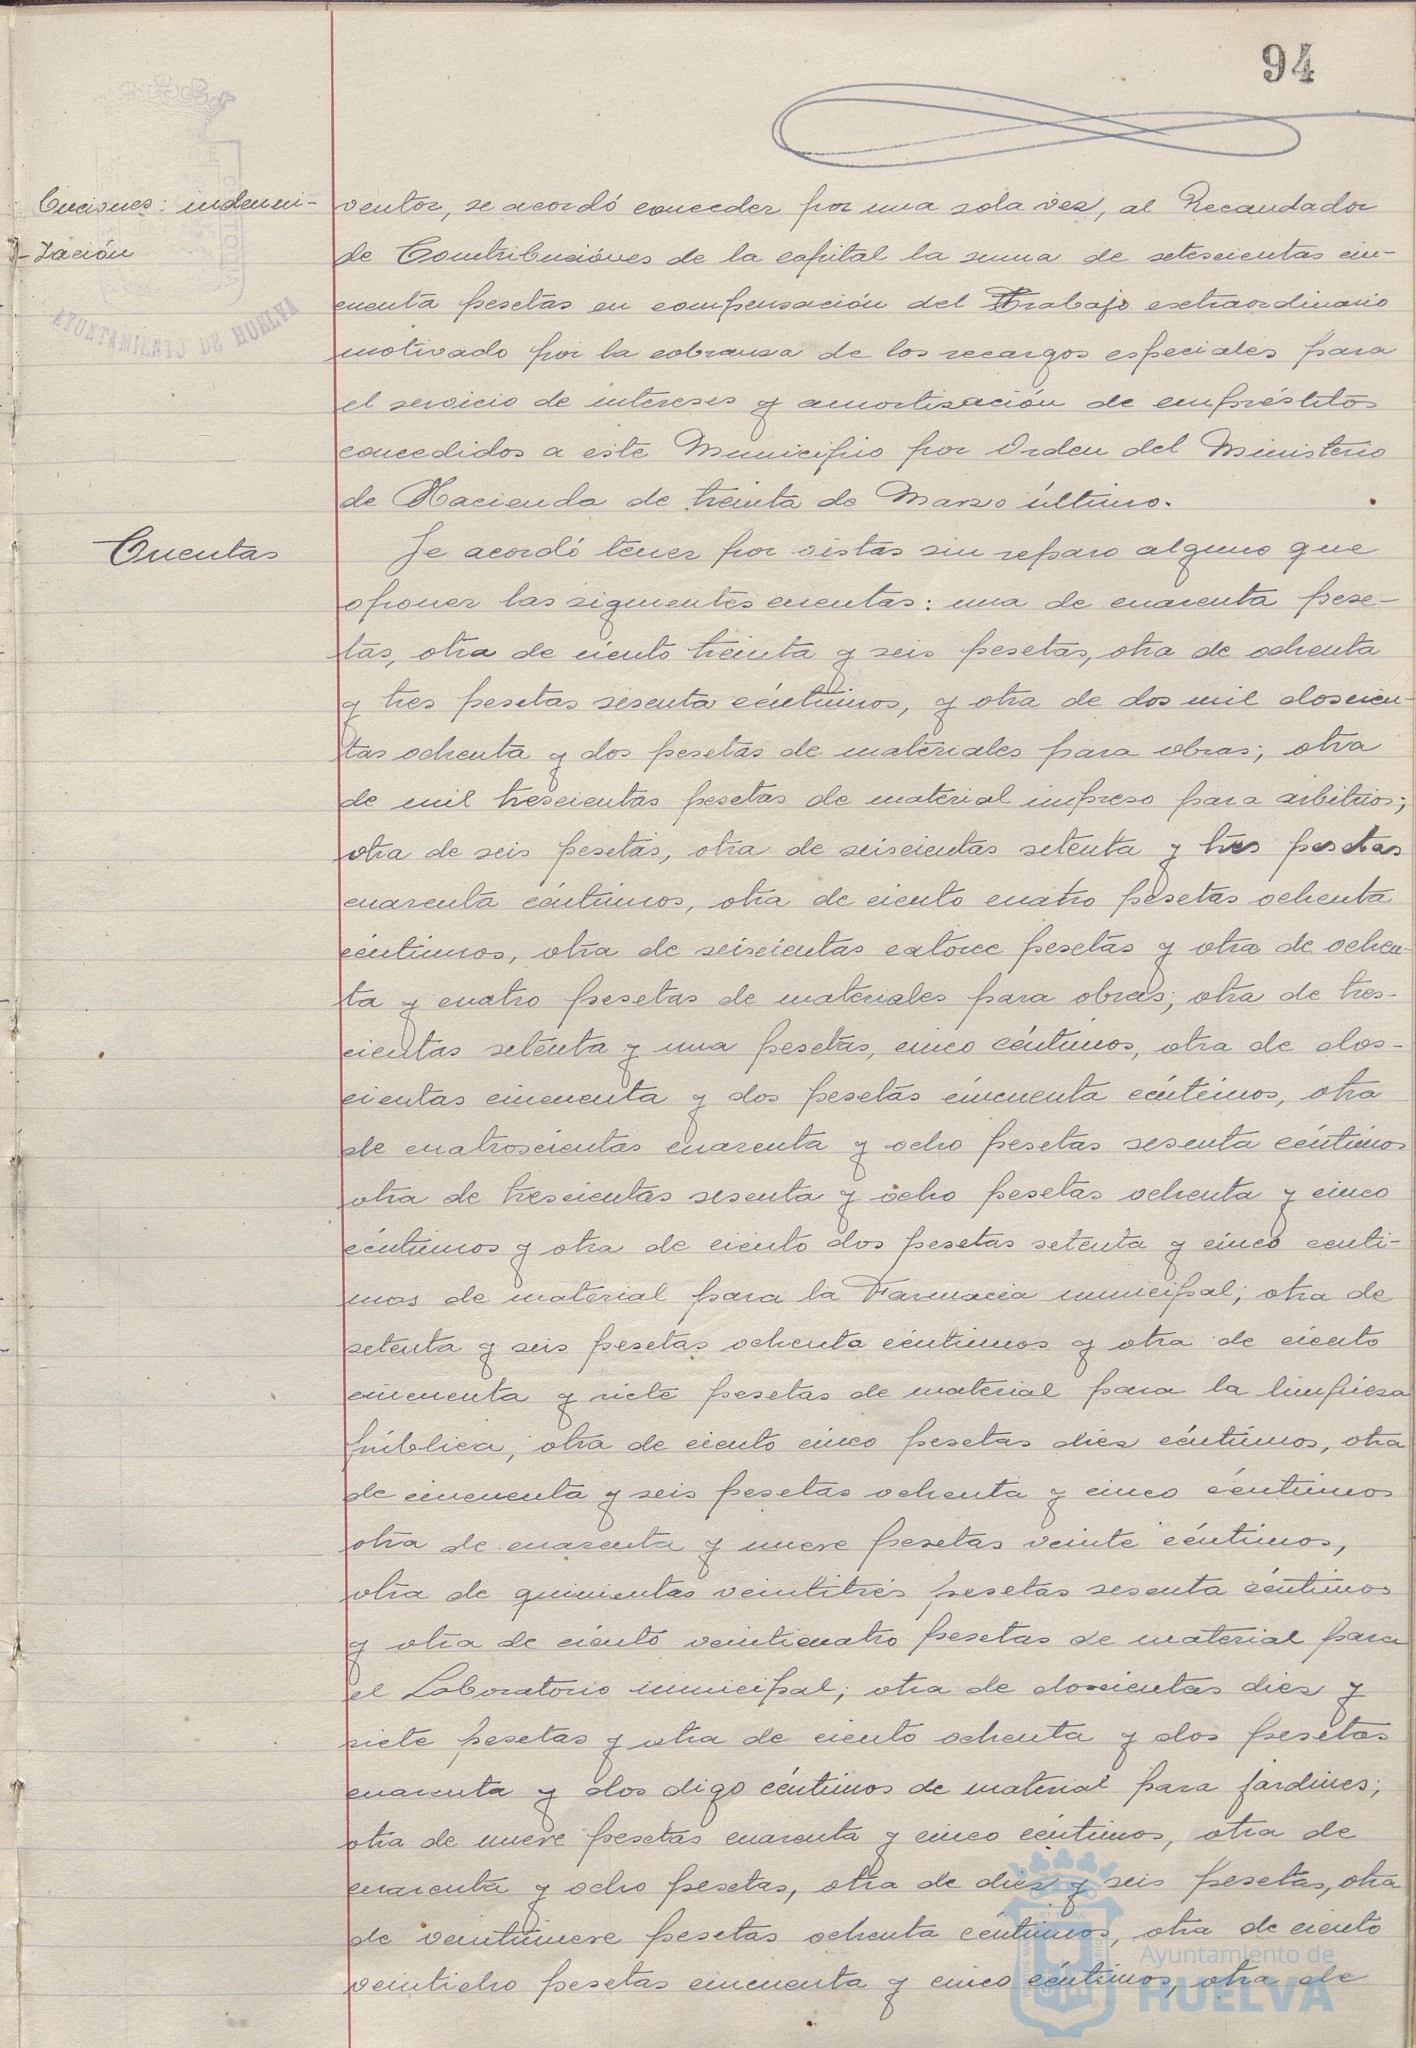 94
buciones: indemni-
zación
AYUNTAMIENTO DE HUELVA
ventor, se acordó conceder por una sola vez, al Recaudador
de Contribuciónes de la capital la suma de setescientas cin-
cuenta pesetas en compensación del Trabajo extraordinario
motivado por la cobranza de los recargos especiales para
el servicio de intereses y amortización de empréstitos
concedidos a este Municipio por Orden del Ministerio
de Hacienda de treinta de Marzo último.
Cuentas
Se acordó tener por vistas sin reparo alguno que
oponer las siguientes cuentas: una de cuarenta pese-
tas, otra de ciento treinta y seis pesetas, otra de ochenta
y tres pesetas sesenta céntimos, y otra de dos mil doscien-
tas ochenta y dos pesetas de materiales para obras; otra
de mil trescientas pesetas de material impreso para arbitrios;
otra de seis pesetas, otra de seiscientas setenta y tres pesetas
cuarenta céntimos, otra de ciento cuatro pesetas ochenta
céntimos, otra de seiscientas catorce pesetas y otra de ochen-
ta y cuatro pesetas de materiales para obras; otra de tres-
cientas setenta y una pesetas, cinco céntimos, otra de dos-
cientas cincuenta y dos pesetas cincuenta céntimos, otra
de cuatroscientas cuarenta y ocho pesetas sesenta céntimos
otra de trescientas sesenta y ocho pesetas ochenta y cinco
céntimos y otra de ciento dos pesetas setenta y cinco centi-
mos de material para la Farmacia municipal; otra de
setenta y seis pesetas ochenta céntimos y otra de ciento
cincuenta y siete pesetas de material para la limpieza
pública; otra de ciento cinco pesetas diez céntimos, otra
de cincuenta y seis pesetas ochenta y cinco céntimos
otra de cuarenta y nueve pesetas veinte céntimos,
otra de quinientas veintitrés pesetas sesenta céntimos
y otra de ciento veinticuatro pesetas de material para
el Laboratorio municipal; otra de doscientas diez y
siete pesetas y otra de ciento ochenta y dos pesetas
cuarenta y dos digo céntimos de material para jardines;
otra de nueve pesetas cuarenta y cinco céntimos, otra de
cuarenta y ocho pesetas, otra de diez y seis pesetas, otra
de veintinueve pesetas ochenta céntimos, otra de ciento
veintiocho pesetas cincuenta y cinco céntimos, otra de
Ayuntamiento de
HUELVA